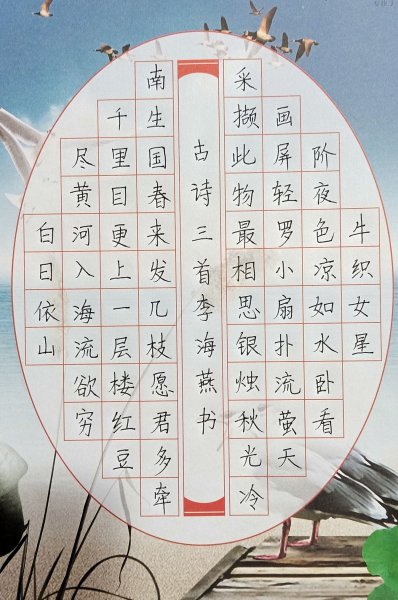 白日依山
尽黄河入海流欲穷
千里目更上一层楼红豆
南生国春来发几枝愿君多牵
古诗三首李海燕书
采撷此物最相思银烛秋光冷
画屏轻罗小扇扑流萤天
阶夜色凉如水卧看
牛织女星